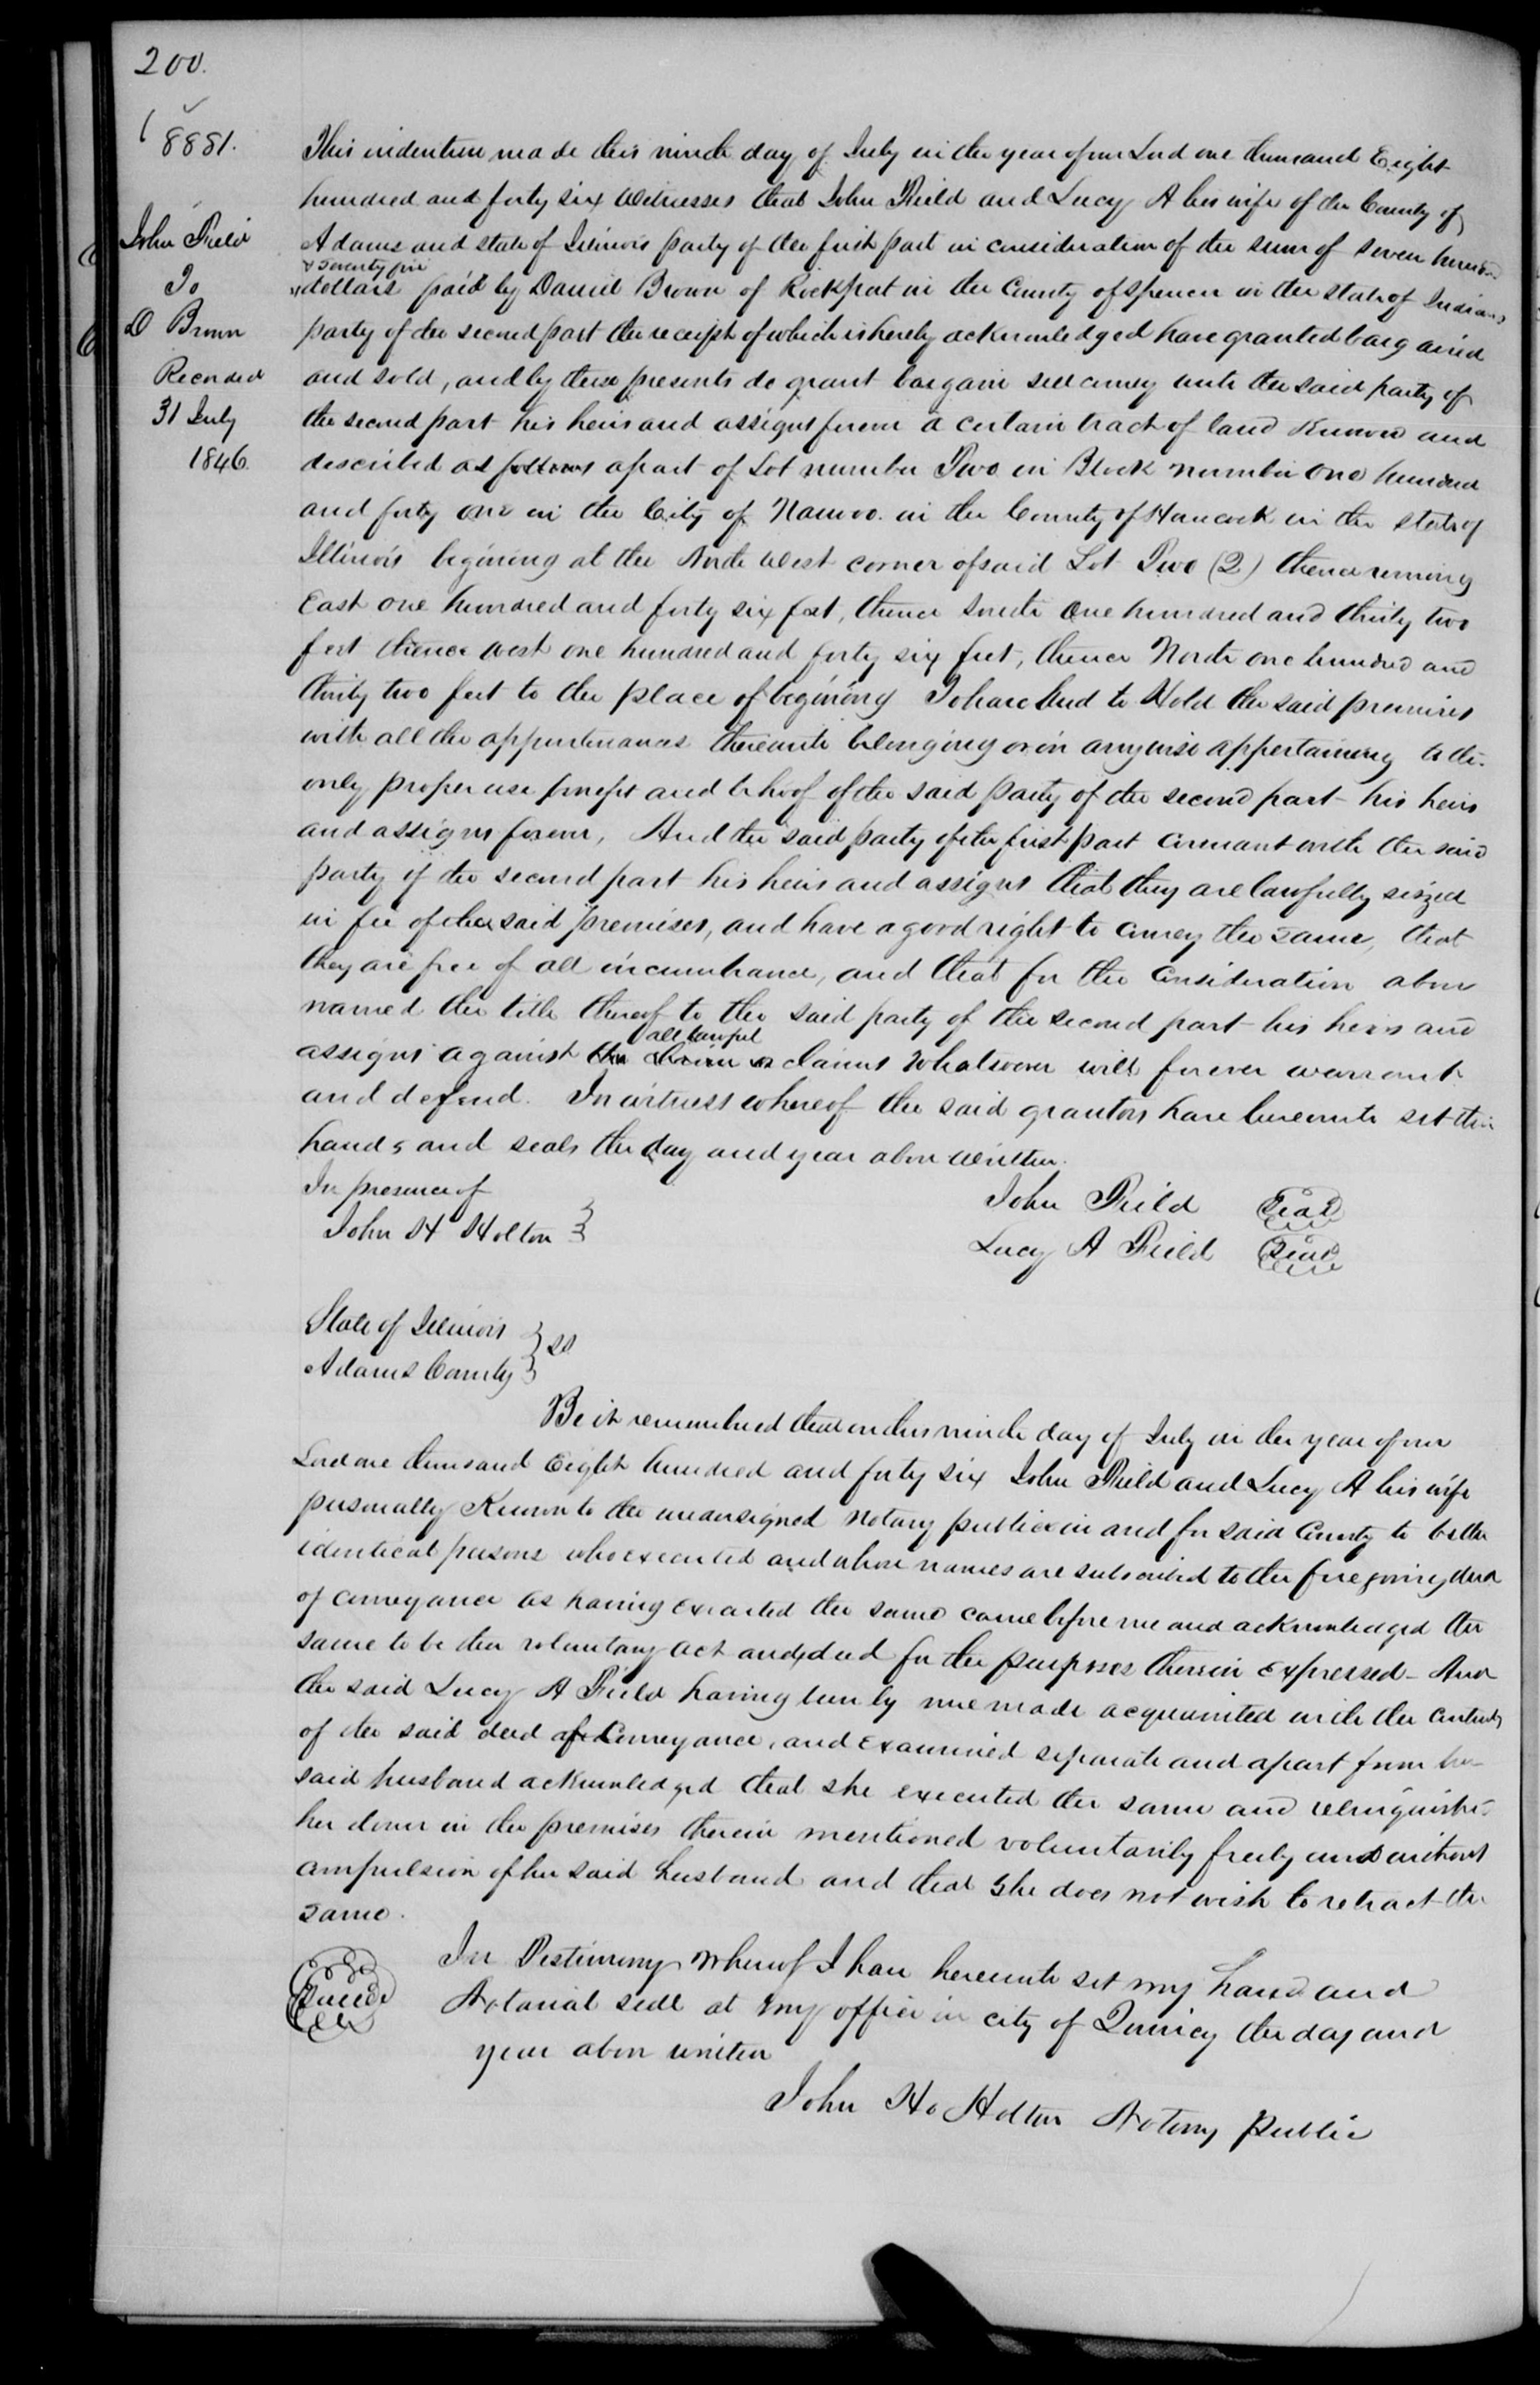 200.
8881.
John Field
To
D Brown
Recorded
31 July
1846.
This indenture made this ninth day of July in the year of our Lord one thousand Eight
hundred and forty six Witnesses that John Field and Lucy A his wife of the County of
Adams and state of Illinois party of the first part in consideration of the sum of seven hundred
& seventy five
dollars paid by Daniel Brown of Rockport in the County of Spencer in the state of Indiana
party of the second part the receipt of which is hereby acknowledged have granted bargained
and sold, and by these presents do grant bargain sell convey unto the said party of
the second part his heirs and assigns forever a certain tract of land Known and
described as follows a part of Lot number Two in Block number One hundred
and forty one in the City of Nauvoo. in the County of Hancock in the state of
Illinois begining at the North West corner of said Lot Two (2) thence running
East one hundred and forty six feet, thence South One hundred and thirty two
feet thence West one hundred and forty six feet, thence North one hundred and
thirty two feet to the place of begining To have and to Hold the said premises
with all the appurtenances thereunto belonging or in anywise appertaining to the
only proper use benefit and behoof of the said party of the second part his heirs
and assigns forever, And the said party of the first part covenant with the said
party of the second part his heirs and assigns that they are lawfully seized
in fee of the said premises, and have a good right to convey the same, that
they are free of all incumbrance, and that for the consideration above
named the title thereof to the said party of the second part his heirs and
all lawful
assigns against the claim or claims Whatsoever will forever warrant
and defend. In witness whereof the said grantors have hereunto set their
hands and seals the day and year above Written.
In presence of
John H Holton
John Field Seal
Lucy A Field Seal
State of Illinois
Adams County } SS
Be it remembered that on this ninth day of July in the year of our
Lord one thousand Eight hundred and forty six John Field and Lucy A his wife
personally Known to the undersigned Notary public in and for said County to be the
identical persons who executed and whose names are subscribed to the foregoing deed
of conveyance as having executed the same came before me and acknowledged the
same to be their voluntary act and deed for the purposes therein expressed - And
the said Lucy A Field having been by me made acquainted with the contents
of the said deed of Conveyance, and Examined separate and apart from her
said husband acknowledged that she executed the same and relinquished
her dower in the premises therein mentioned voluntarily freely and without
compulsion of her said husband and that she does not wish to retract the
same.
In Testimony Whereof I have hereunto set my hand and
Notarial seal at my office in city of Quincy the day and
year above written
John H. Holton Notary public